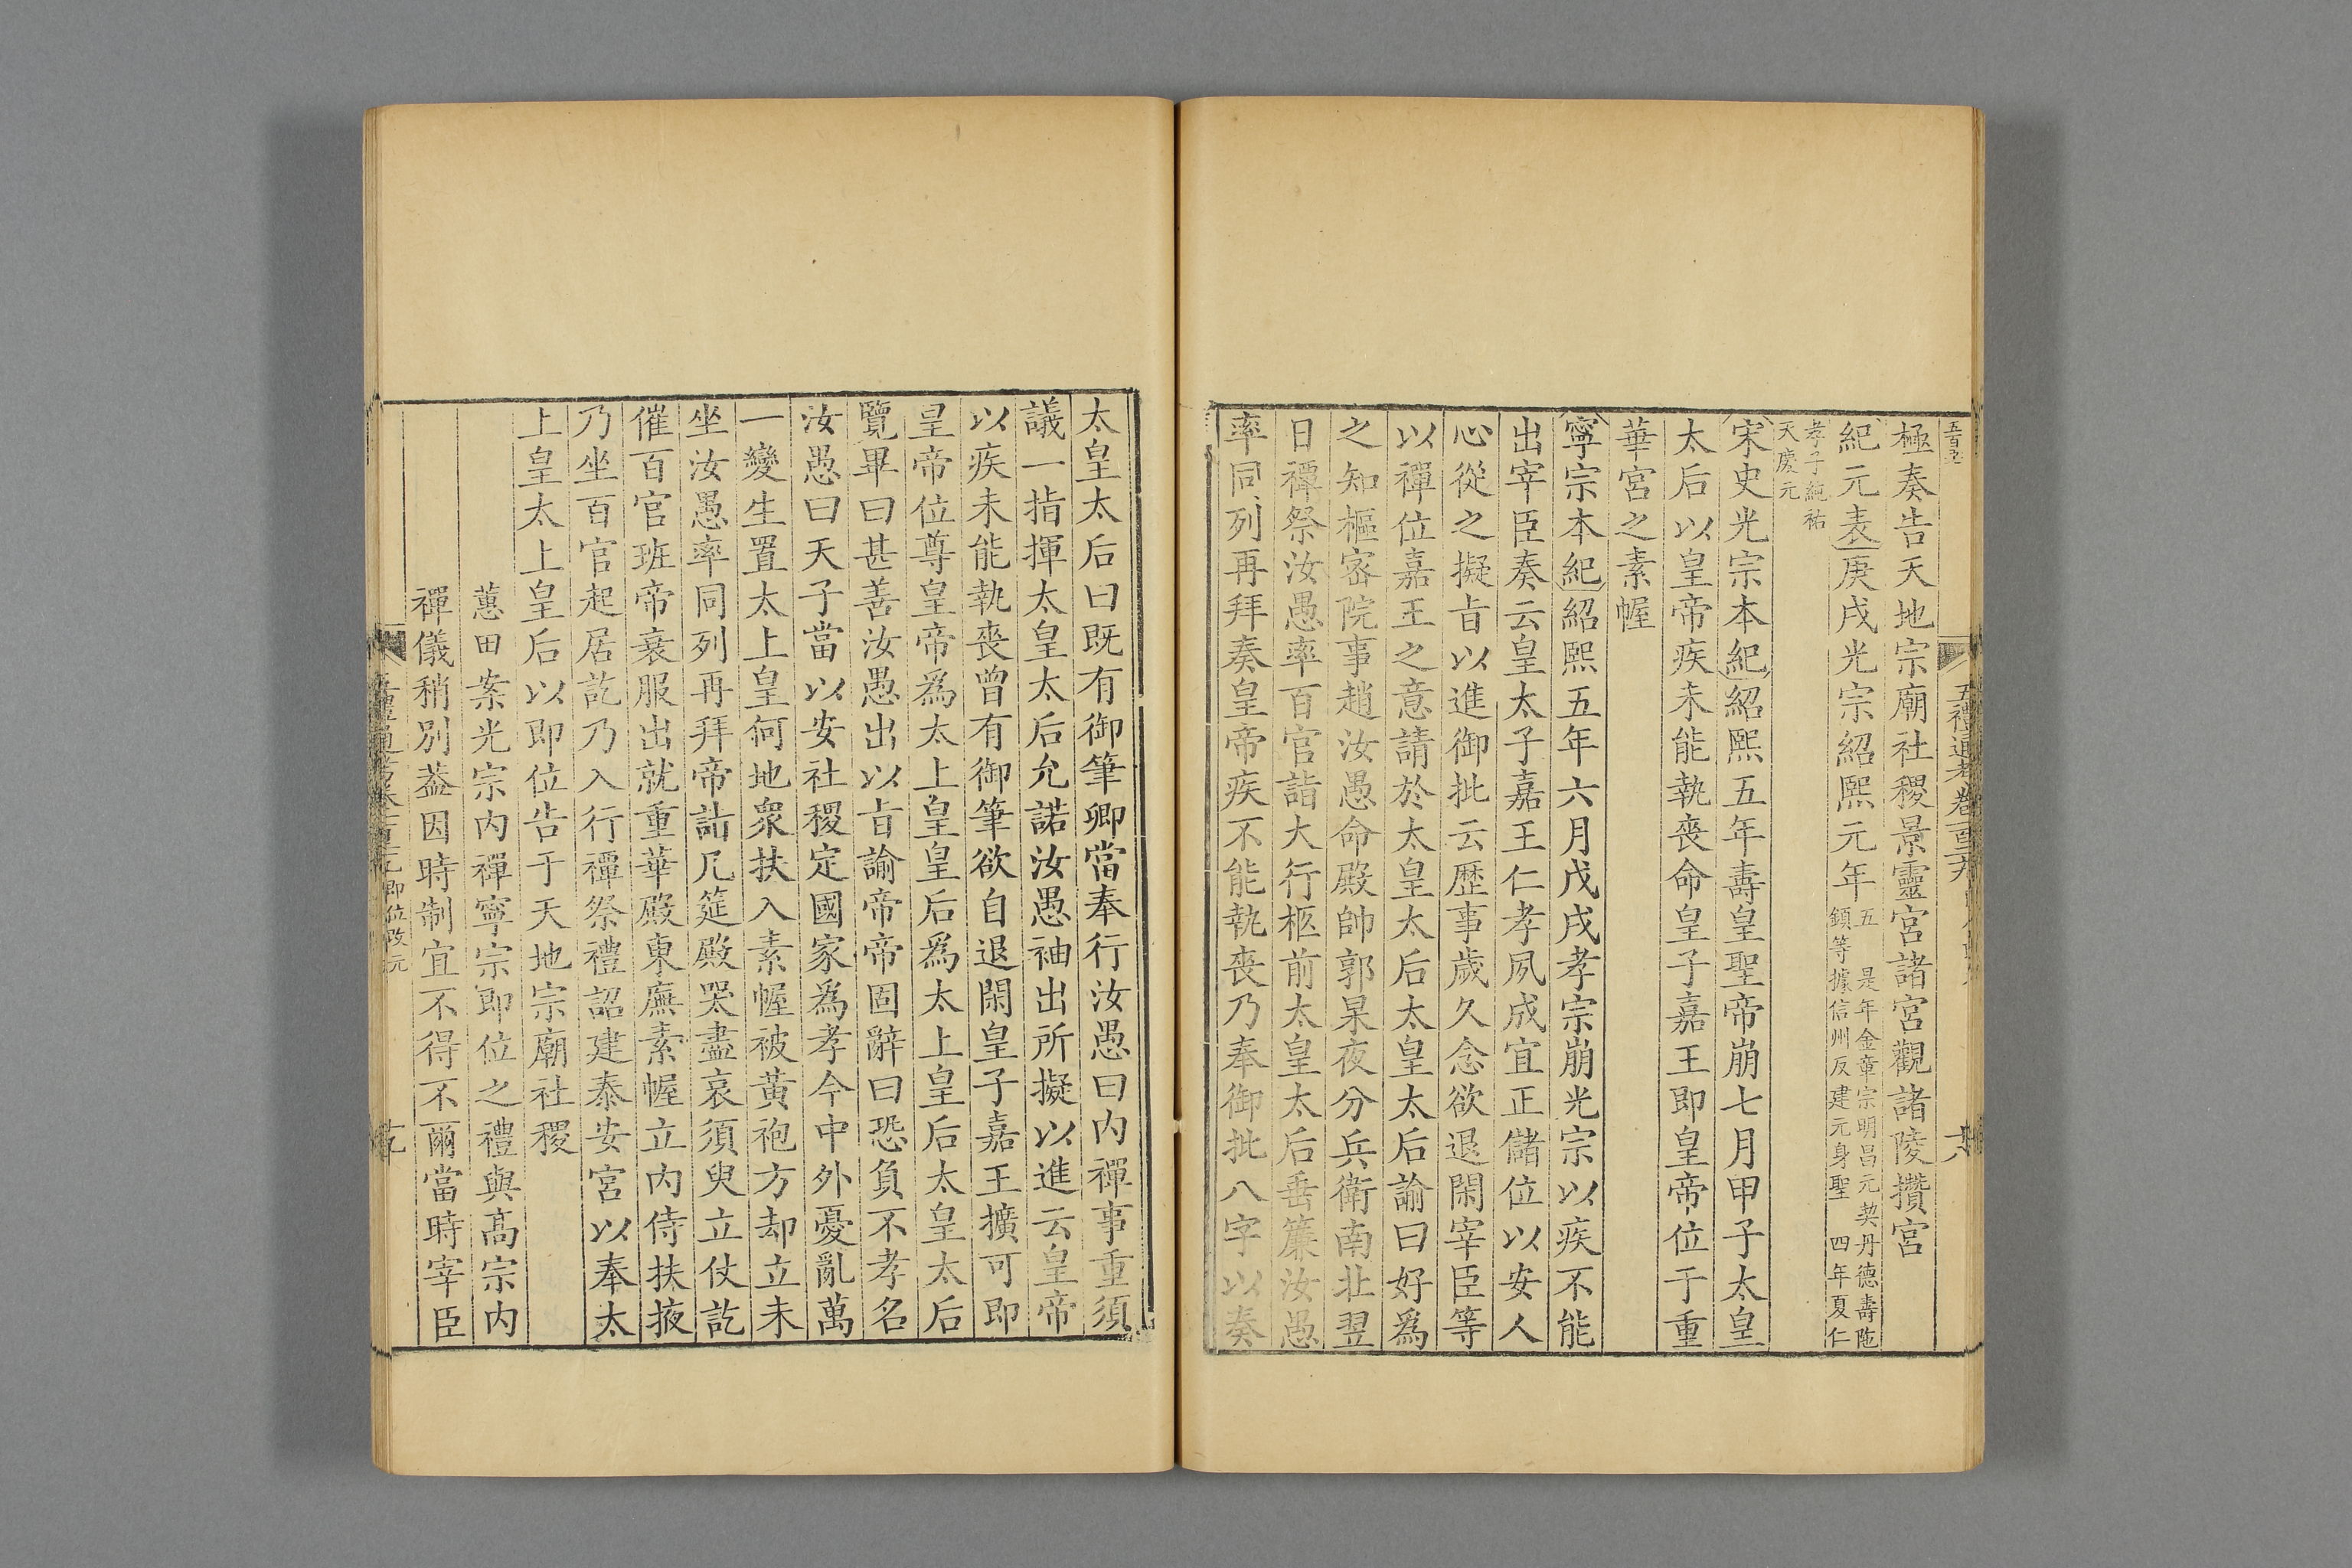 極奏告天地宗廟社稷景靈宮諸宮觀諸陵攢宮
紀元表庚戌光宗紹熙元年
五 是年金章宗明昌元契丹德壽陁
鎖等據信州反建元身聖 四年夏仁
孝子純祐
天慶元
宋史光宗本紀紹熙五年壽皇聖帝崩七月甲子太皇
太后以皇帝疾未能執喪命皇子嘉王即皇帝位于重
華宮之素幄
寧宗本紀紹熙五年六月戊戌孝宗崩光宗以疾不能
出宰臣奏云皇太子嘉王仁孝夙成宜正儲位以安人
心從之擬旨以進御批云歷事歲久念欲退閑宰臣等
以禪位嘉王之意請於太皇太后太皇太后諭曰好爲
之知樞密院事趙汝愚命殿帥郭杲夜分兵衛南北翌
日禫祭汝愚率百官詣大行柩前太皇太后垂簾汝愚
率同列再拜奏皇帝疾不能執喪乃奉御批八字以奏
太皇太后曰既有御筆卿當奉行汝愚曰内禪事重須
議一指揮太皇太后允諾汝愚袖出所擬以進云皇帝
以疾未能執喪曾有御筆欲自退閑皇子嘉王擴可即
皇帝位尊皇帝爲太上皇皇后爲太上皇后太皇太后
覽畢曰甚善汝愚出以旨諭帝帝固辭曰恐負不孝名
汝愚曰天子當以安社稷定國家爲孝今中外憂亂萬
一變生置太上皇何地衆扶入素幄被黃袍方却立未
坐汝愚率同列再拜帝詣几筵殿哭盡哀須臾立仗訖
催百官班帝衰服出就重華殿東廡素幄立内侍扶掖
乃坐百官起居訖乃入行禫祭禮詔建泰安宮以奉太
上皇太上皇后以即位告于天地宗廟社稷
蕙田案光宗内禪寧宗即位之禮與高宗内
禪儀稍別葢因時制宜不得不爾當時宰臣